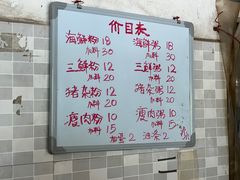 价目表
海鲜粉 18 海鲜粥 18
加料 30 加料 30
三鲜粉 12 三鲜粥 12
加料 20 加料 20
猪杂粉 12 猪杂粥 12
加料 20 加料 20
瘦肉粉 10 瘦肉粥 10
加料 15 加料 15
加蛋 2 油条 2